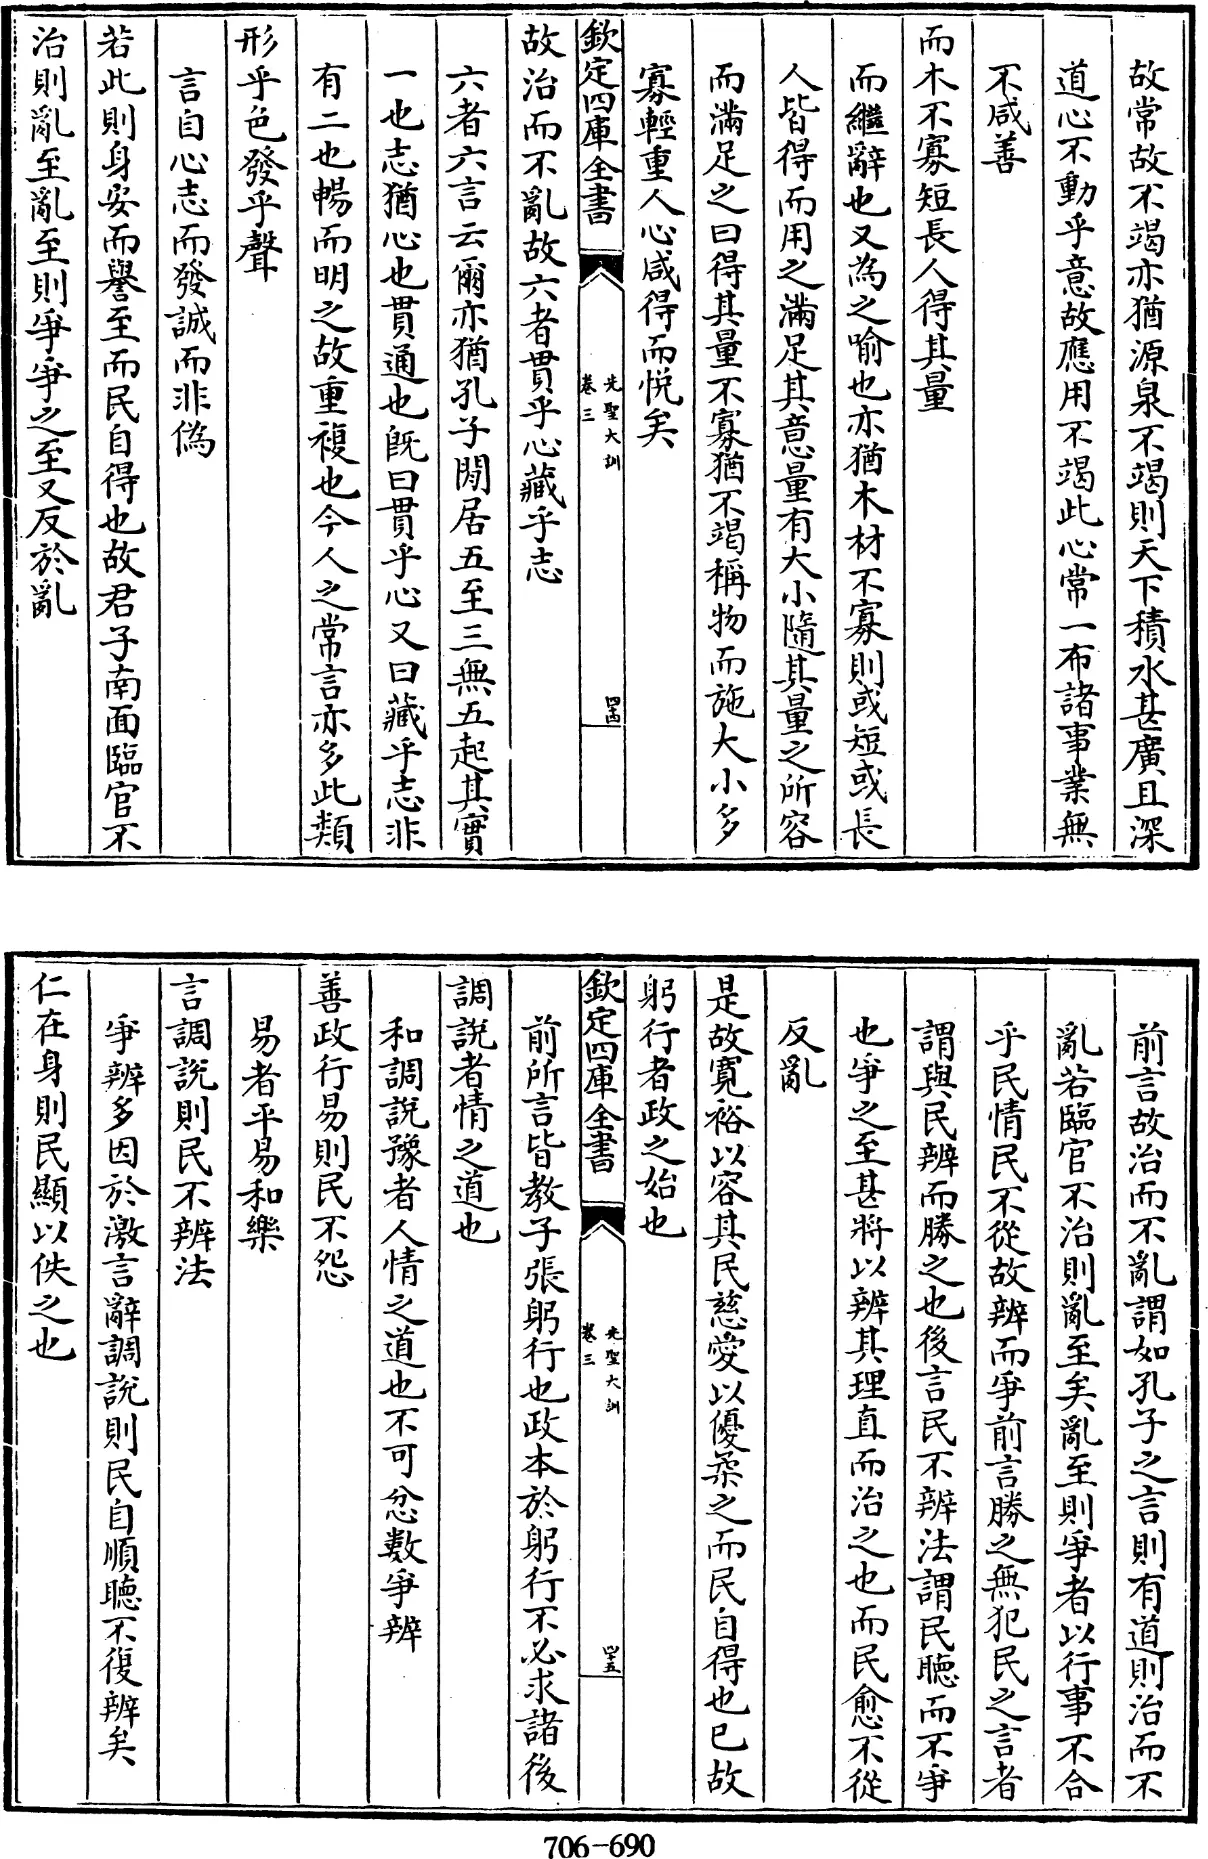 故常故不竭亦猶源泉不竭則天下積水甚廣且深
道心不動乎意故應用不竭此心常一布諸事業無
不咸善
而木不寡短長人得其量
而繼辭也又為之喻也亦猶木材不寡則或短或長
人皆得而用之滿足其意量有大小隨其量之所容
而滿足之曰得其量不寡猶不竭稱物而施大小多
寡輕重人心咸得而悅矣
欽定四庫全書
先聖大訓
卷三
四十四
故治而不亂故六者貫乎心藏乎志
六者六言云爾亦猶孔子閒居五至三無五起其實
一也志猶心也貫通也既曰貫乎心又曰藏乎志非
有二也暢而明之故重複也今人之常言亦多此類
形乎色發乎聲
言自心志而發誠而非偽
若此則身安而譽至而民自得也故君子南面臨官不
治則亂至亂至則爭爭之至又反於亂
前言故治而不亂謂如孔子之言則有道則治而不
亂若臨官不治則亂至矣亂至則爭者以行事不合
乎民情民不從故辨而爭前言勝之無犯民之言者
謂與民辨而勝之也後言民不辨法謂民聽而不爭
也爭之至甚將以辨其理直而治之也而民愈不從
反亂
是故寬裕以容其民慈愛以優柔之而民自得也已故
躬行者政之始也
欽定四庫全書
先聖大訓
卷三
四十五
前所言皆教子張躬行也政本於躬行不必求諸後
調說者情之道也
和調說豫者人情之道也不可忿數爭辨
善政行易則民不怨
易者平易和樂
言調說則民不辨法
爭辨多因於激言辭調說則民自順聽不復辨矣
仁在身則民顯以佚之也
706-690